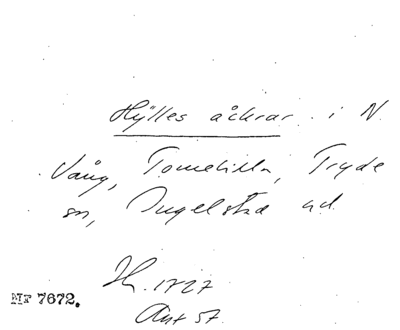 Hylles åkrar i N.
Vång, Tomelilla, Tryde
sn, Ingelstad hd.
H. 1727
Akt 57.
MF 7672.